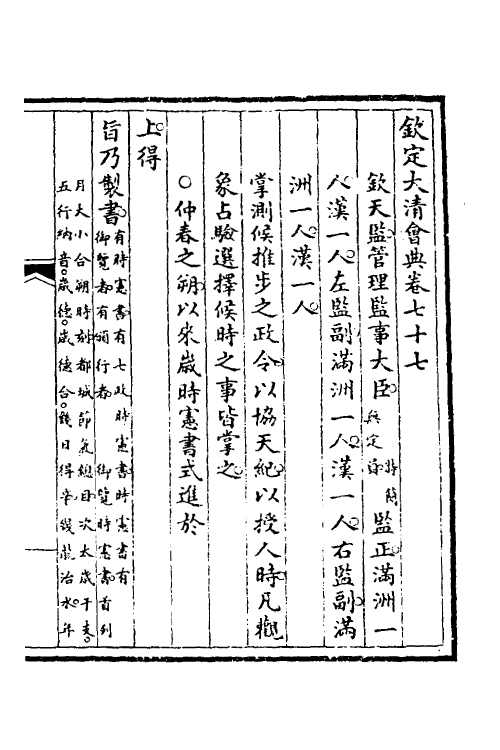 欽定大清會典卷七十七
欽天監管理監事大臣特簡無定員監正滿洲一
人漢一人左監副滿洲一人漢一人右監副滿
洲一人漢一人
掌測候推步之政令以協天紀以授人時凡觀
象占驗選擇候時之事皆掌之
○仲春之朔以來歲時憲書式進於
上得
旨乃製書
有時憲書有七政時憲書時憲書有
御覽者有頒行者御覽時憲書首列
月大小合朔時刻都城節氣總目次太歲干支
五行納音歲德歲德合幾日得辛幾龍治水年